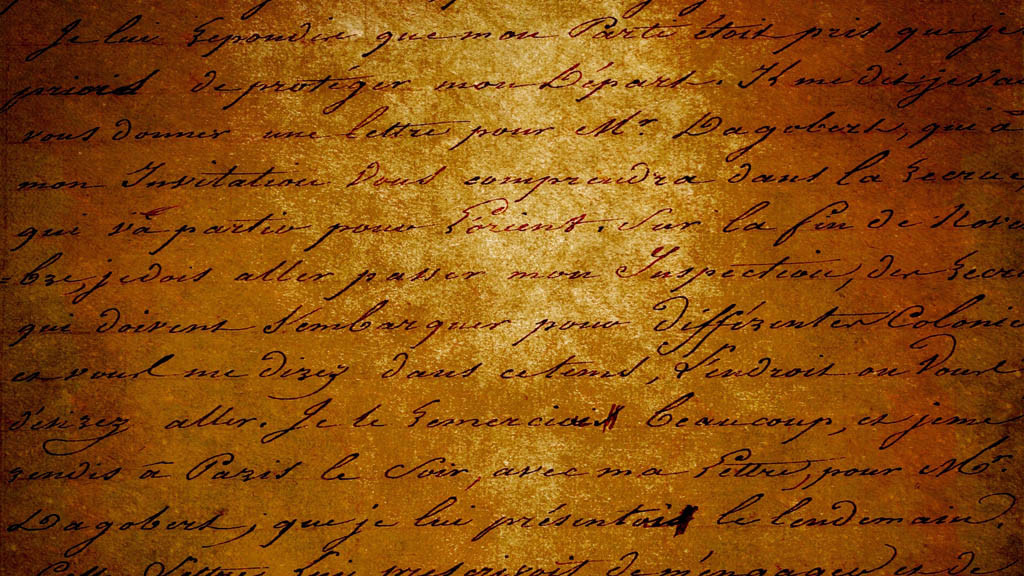 Je lui Repondis que mon Parti étoit pris que je
priois de protéger mon Départ. Il me dit, je va
vous donner une lettre pour Mr. Dagobert, qui à
mon Invitation vous comprendra dans la Recrue,
qui va partir pour L'orient. Sur la fin de Nove
=bre, je dois aller passer mon Inspection, des Recru
qui doivent s'embarquer pour différentes Colonie
et vous me direz dans ce tems, l'endroit ou Vous
désirez aller. Je le Remerciais beaucoup, et je me
rendis à Paris le Soir, avec ma Lettre, pour Mr.
Dagobert, que je lui présentois le lendemain.
Cette Lettre Lui prescrivoit de m'engager et de